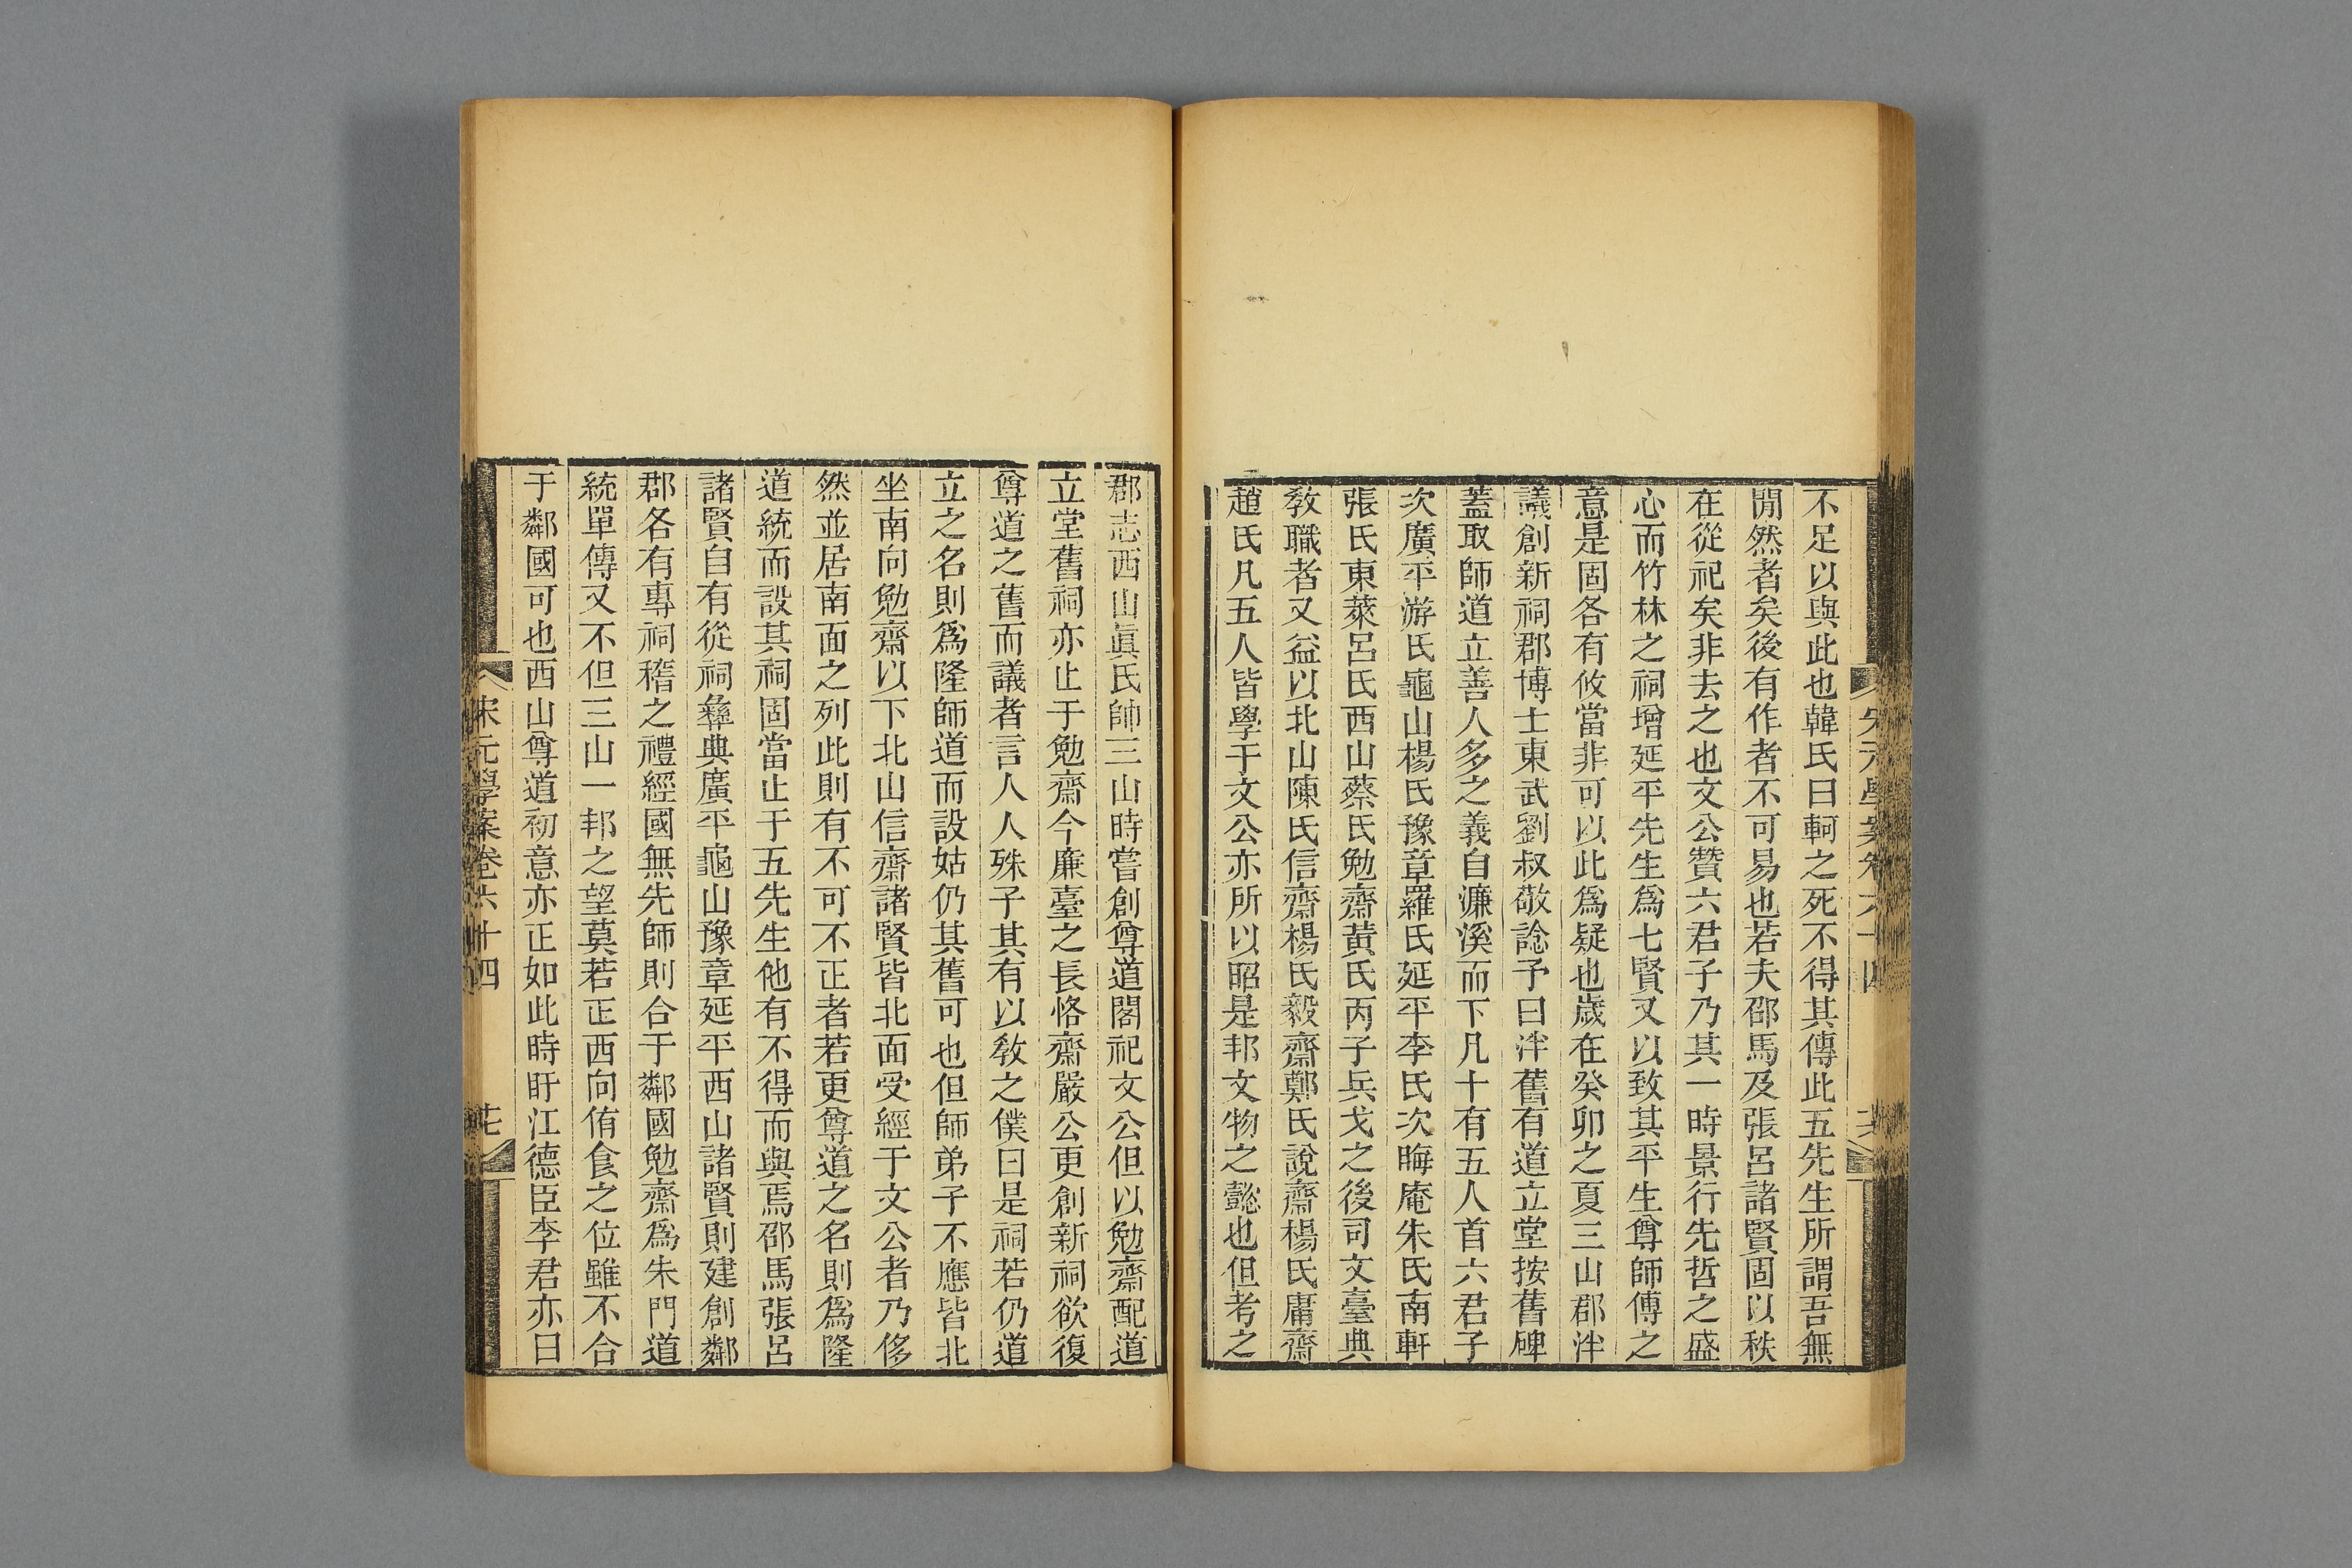 不足以與此也韓氏曰軻之死不得其傳此五先生所謂吾無
閒然者矣後有作者不可易也若夫邵馬及張呂諸賢固以秩
在從祀矣非去之也文公贊六君子乃其一時景行先哲之盛
心而竹林之祠增延平先生爲七賢又以致其平生尊師傅之
意是固各有攸當非可以此爲疑也歲在癸卯之夏三山郡泮
議創新祠郡博士東武劉叔敬諗予曰泮舊有道立堂按舊碑
蓋取師道立善人多之義自濂溪而下凡十有五人首六君子
次廣平游氏龜山楊氏豫章羅氏延平李氏次晦庵朱氏南軒
張氏東萊呂氏西山蔡氏勉齋黃氏丙子兵戈之後司文臺典
敎職者又益以北山陳氏信齋楊氏毅齋鄭氏說齋楊氏庸齋
趙氏凡五人皆學于文公亦所以昭是邦文物之懿也但考之
郡志西山眞氏帥三山時嘗創尊道閣祀文公但以勉齋配道
立堂舊祠亦止于勉齋今廉臺之長恪齋嚴公更創新祠欲復
尊道之舊而議者言人人殊子其有以敎之僕曰是祠若仍道
立之名則爲隆師道而設姑仍其舊可也但師弟子不應皆北
坐南向勉齋以下北山信齋諸賢皆北面受經于文公者乃侈
然並居南面之列此則有不可不正者若更尊道之名則爲隆
道統而設其祠固當止于五先生他有不得而與焉邵馬張呂
諸賢自有從祠彝典廣平龜山豫章延平西山諸賢則建創鄰
郡各有專祠稽之禮經國無先師則合于鄰國勉齋爲朱門道
統單傳又不但三山一邦之望莫若正西向侑食之位雖不合
于鄰國可也西山尊道初意亦正如此時盱江德臣李君亦曰
宋元學案卷六十四